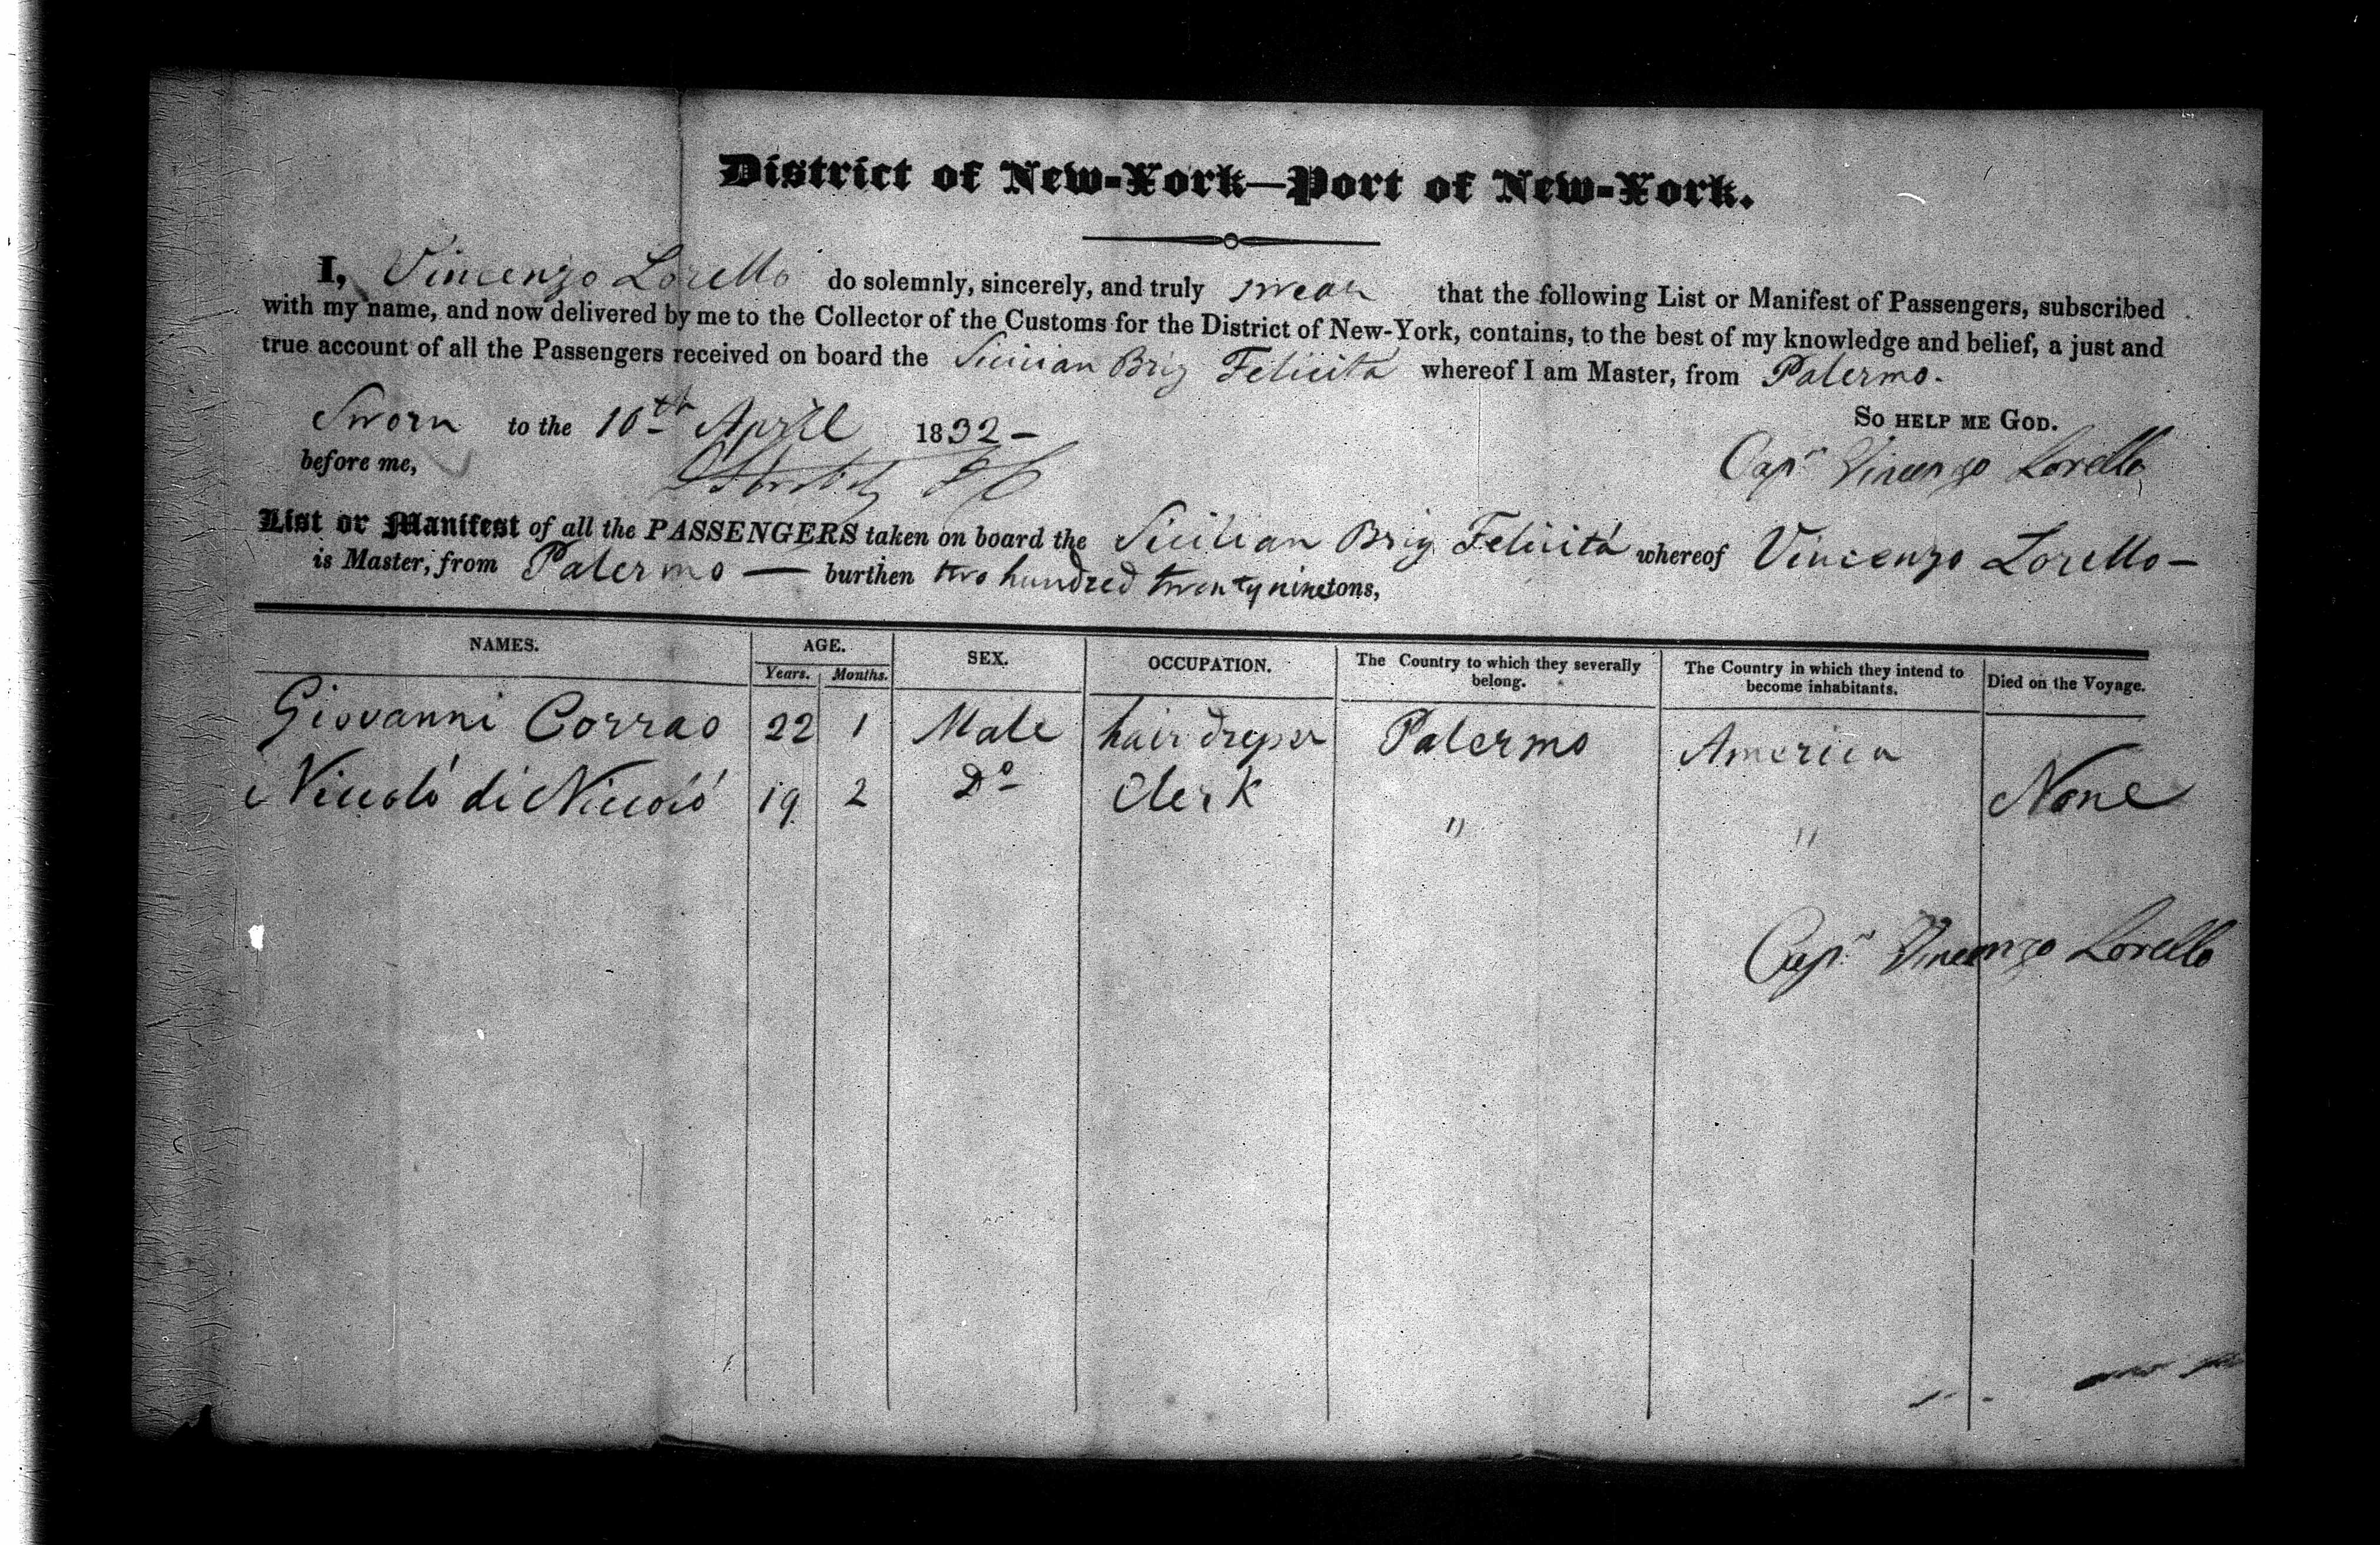 District of New-York—Port of New-York.
I, Vincenzo Lorello do solemnly, sincerely, and truly swear that the following List or Manifest of Passengers, subscribed
with my name, and now delivered by me to the Collector of the Customs for the District of New-York, contains, to the best of my knowledge and belief, a just and
true account of all the Passengers received on board the Sicilian Brig Felicitá whereof I am Master, from Palermo.
So help me God.
Sworn to the 10th April 1832 —
before me,
Capn Vincenzo Lorello
List or Manifest of all the PASSENGERS taken on board the Sicilian Brig Felicitá whereof Vincenzo Lorello —
is Master, from Palermo — burthen two hundred twenty nine tons,
NAMES. AGE. SEX. OCCUPATION. The Country to which they severally belong. The Country in which they intend to become inhabitants. Died on the Voyage.
Years. Months.
Giovanni Corrao 22 1 Male hair dresser Palermo America
Niccoló di Niccoló 19 2 Do Clerk " " None
Capn Vincenzo Lorello